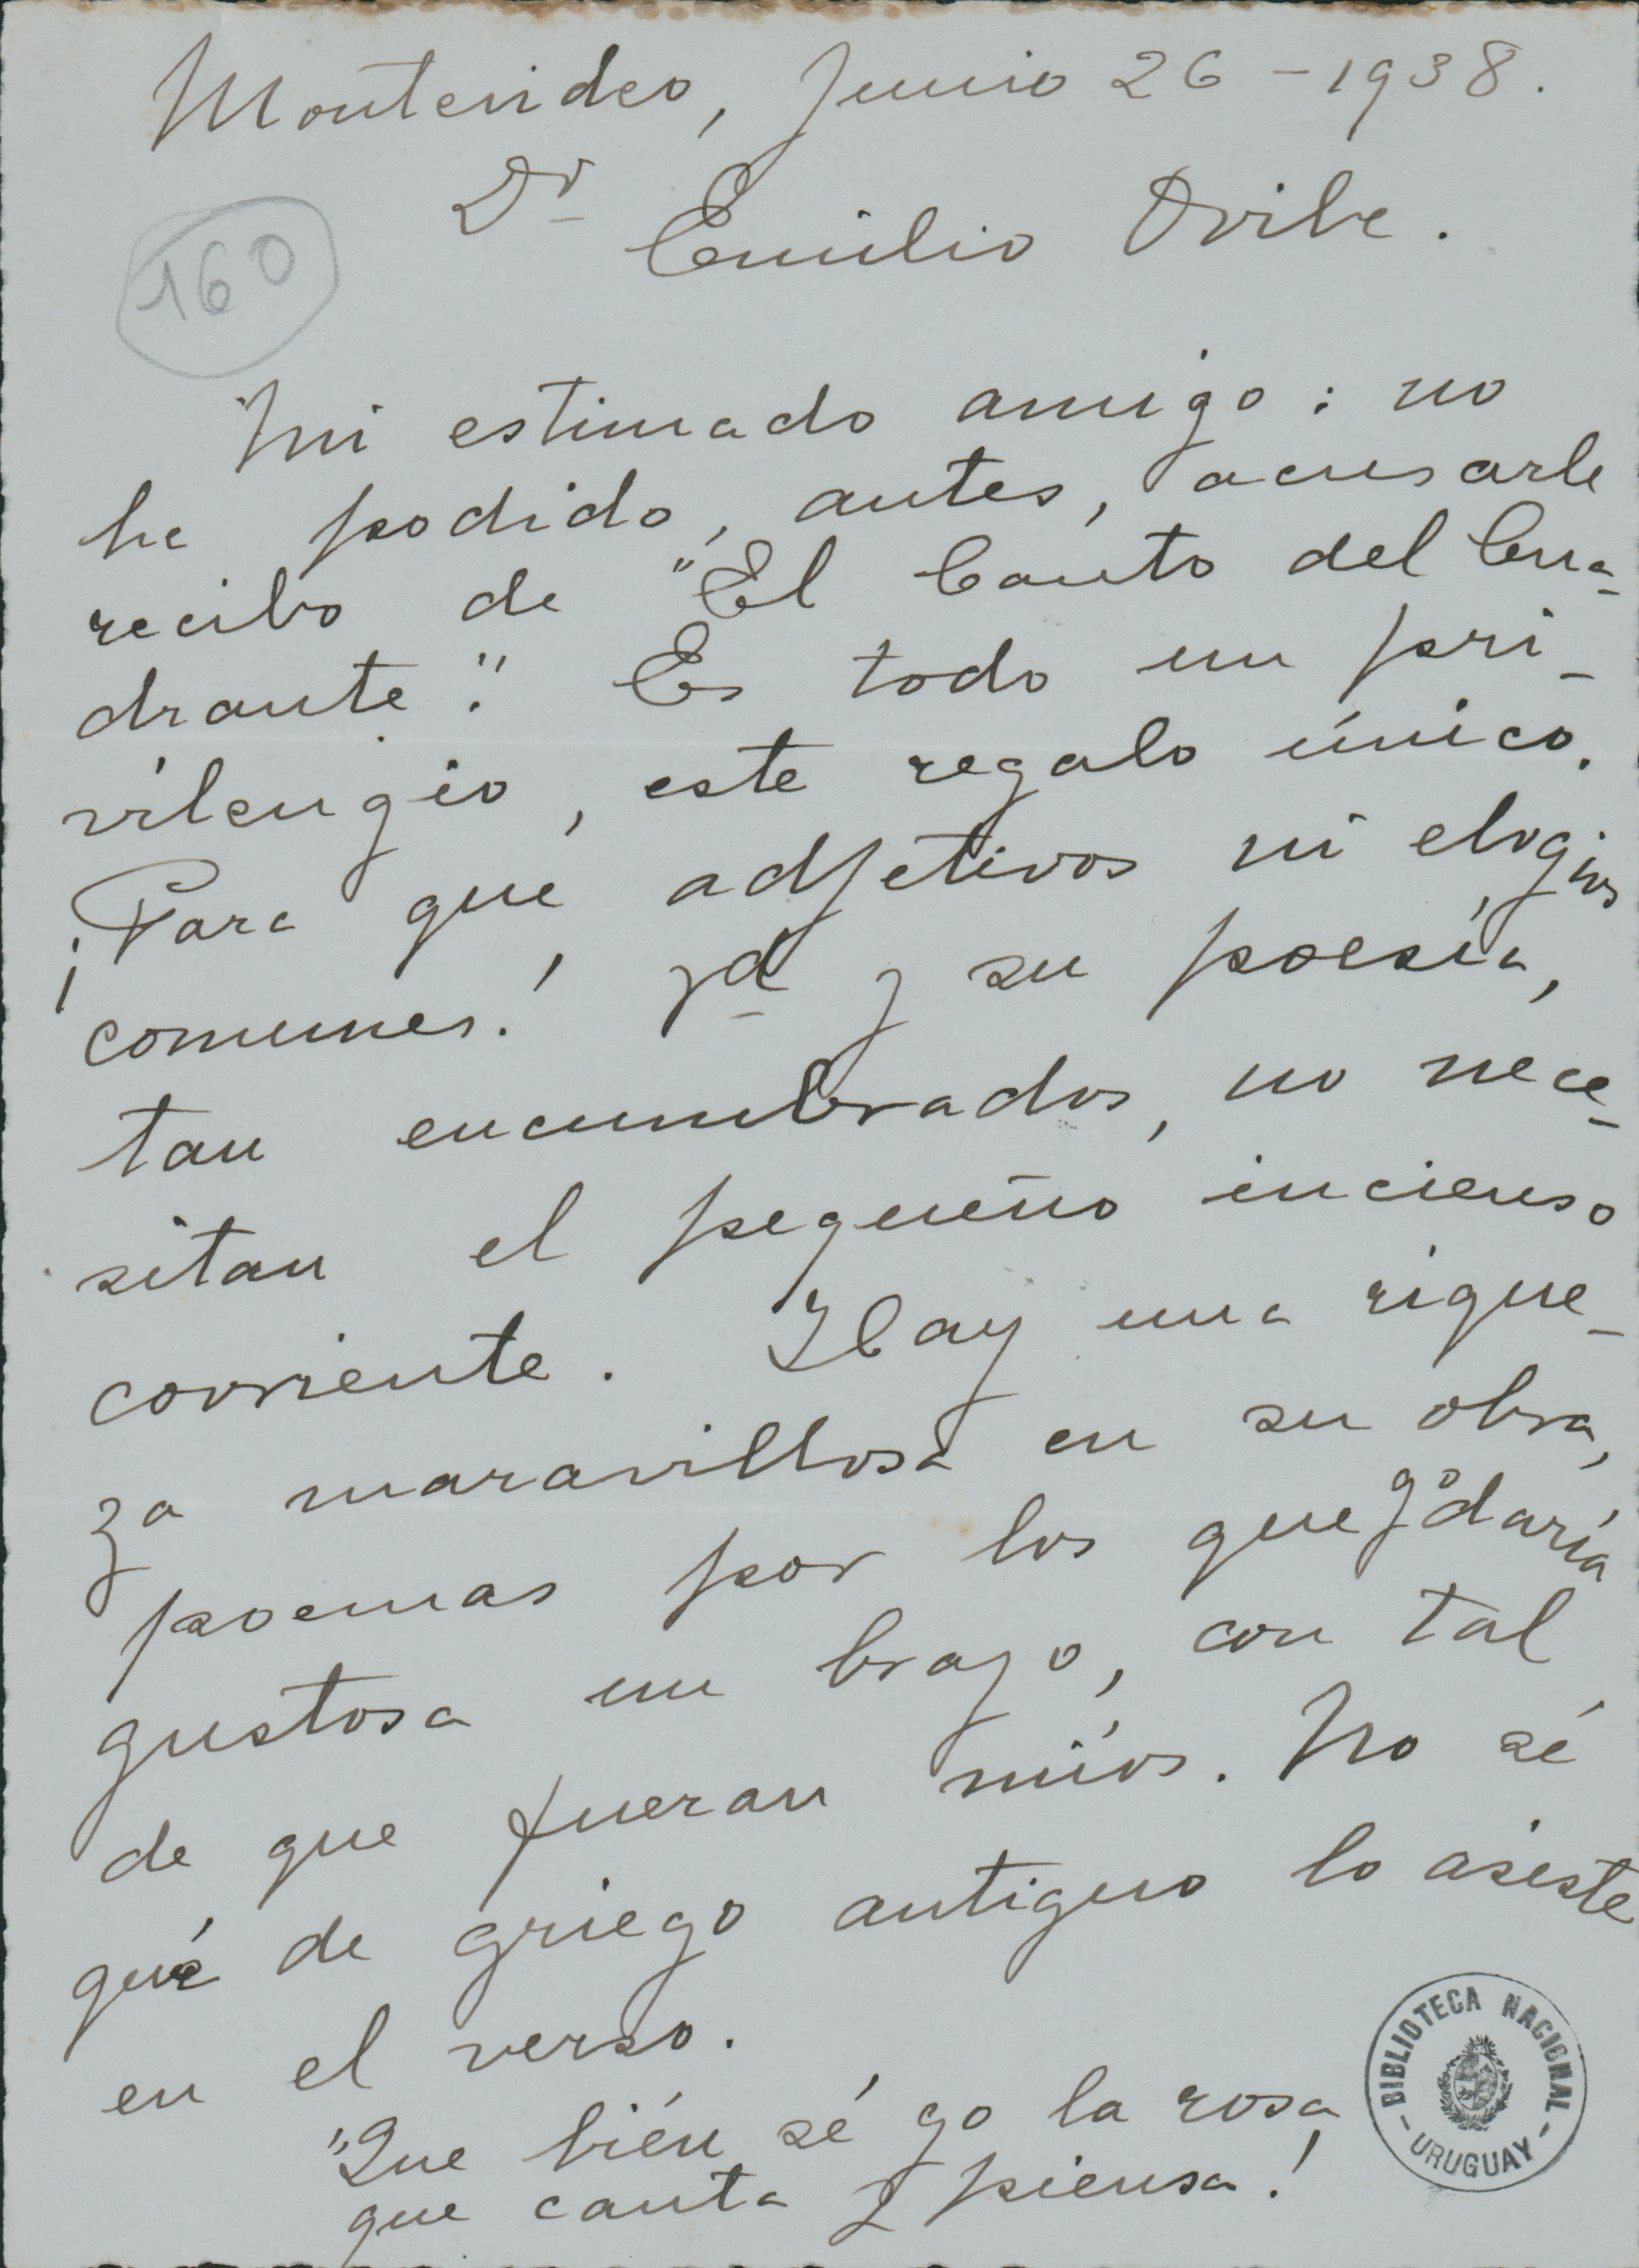 Montevideo, Junio 26 - 1938.
Dr Emilio Oribe.
160
Mi estimado amigo: no
he podido, antes, acusarle
recibo de "El Canto del Cua-
drante". Es todo un pri-
vilengio, este regalo único.
¡Para qué adjetivos ni elogios
comunes! Vd y su poesía,
tan encumbrados, no nece-
sitan el pequeño incienso
corriente. Hay una rique-
za maravillosa en su obra,
poemas por los que yo daría
gustosa un brazo, con tal
de que fueran míos. No sé
qué de griego antiguo lo asiste
en el verso.
"Que bién sé yo la rosa
que canta y piensa!
BIBLIOTECA NACIONAL
- URUGUAY -